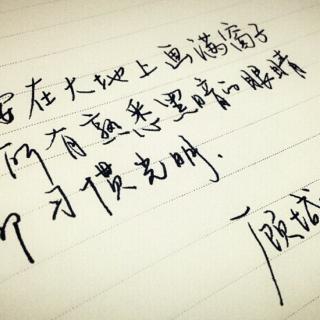 在大地上画满窗子
所有熟悉黑暗的眼睛
习惯光明.
顾城